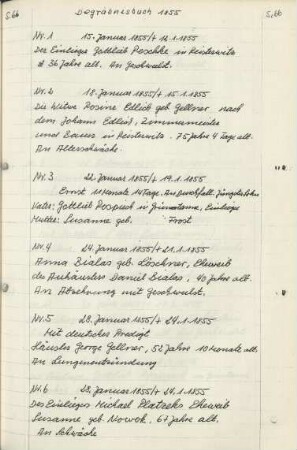 S.66 Begräbnisbuch 1855 S.66
Nr. 1 15. Januar 1855/+ 12.1.1855
Der Einlieger Gottlieb Peschke in
36 Jahre alt. An Geschwulst.
Nr. 2 18. Januar 1855/+ 15.1.1855
Die Witwe Rosine Edlich geb. Gellner nach
dem Johann Edlich, Zimmermeister
und Bauer in . 75 Jahre 4 Tage alt.
An Altersschwäche.
Nr. 3 22. Januar 1855/+ 19.1.1855
Ernst 11 Monate 14 Tage. An Durchfall. Jüngster Sohn
Vater: Gottlieb in , Einlieger
Mutter: Susanne geb. Frost
Nr. 4 24. Januar 1855/+ 21.1.1855
Anna Bialas geb. Löschner, Eheweib
des Auhäuslers Daniel Bialas, 40 Jahre alt.
An Abzehrung mit Geschwulst.
Nr. 5 28. Januar 1855/+ 24.1.1855
Mit deutscher Predigt
Häusler George Gellner, 52 Jahre 10 Monate alt.
An Lungenentzündung
Nr. 6 28. Januar 1855/+ 24.1.1855
Des Einliegers Michael Eheweib
Susanne geb. Nowok. 67 Jahre alt.
An Schwäche